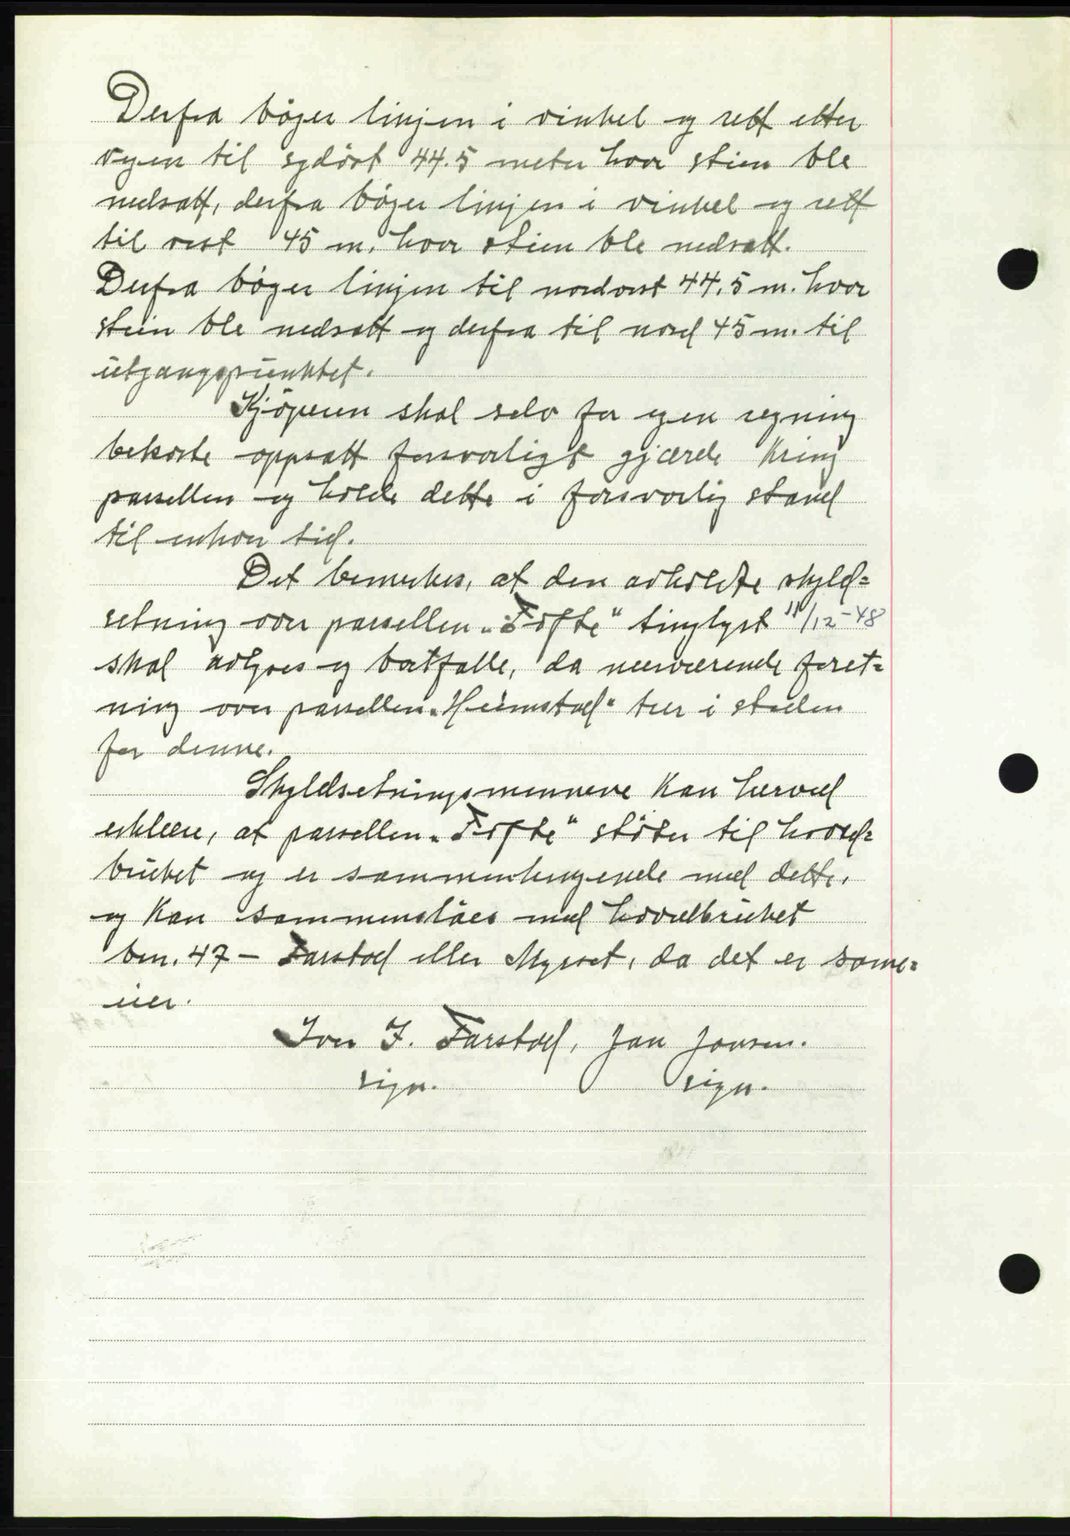 Derfra bøyer linjen i vinkel og rett etter
vegen til sydöst 44.5 meter hvor stien ble
nedsatt, derfra bøyer linjen i vinkel og rett
til vest 45 m. hvor stien ble nedsatt.
Derfra bøyer linjen til nordvest 44.5 m. hvor
stein ble nedsatt og derfra til nord 45 m. til
utgangspunktet.
Kjöperen skal selv for egen regning
bekoste oppsatt forsvarligt gjærde kring
parsellen og holde dette i forsvarlig stand
til enhver tid.
Det bemerkes, at den avholdte skyld=
setning over parsellen „Tofte“ tinglyst 11/12-48
skal avlyses og bortfalle, da nærværende forret=
ning over parsellen „Heimstad“ trer i steden
for denne.
Skyldsetningsmennene kan herved
erklære, at parsellen „Tofte“ støter til hoved=
bruket og er sammenhengende med dette,
og kan sammenslåes med hovedbruket
bnr. 47 – Farstad eller Myrset, da det er same=
eier.
Iver I. Farstad, Jan Jonsen.
sign. sign.